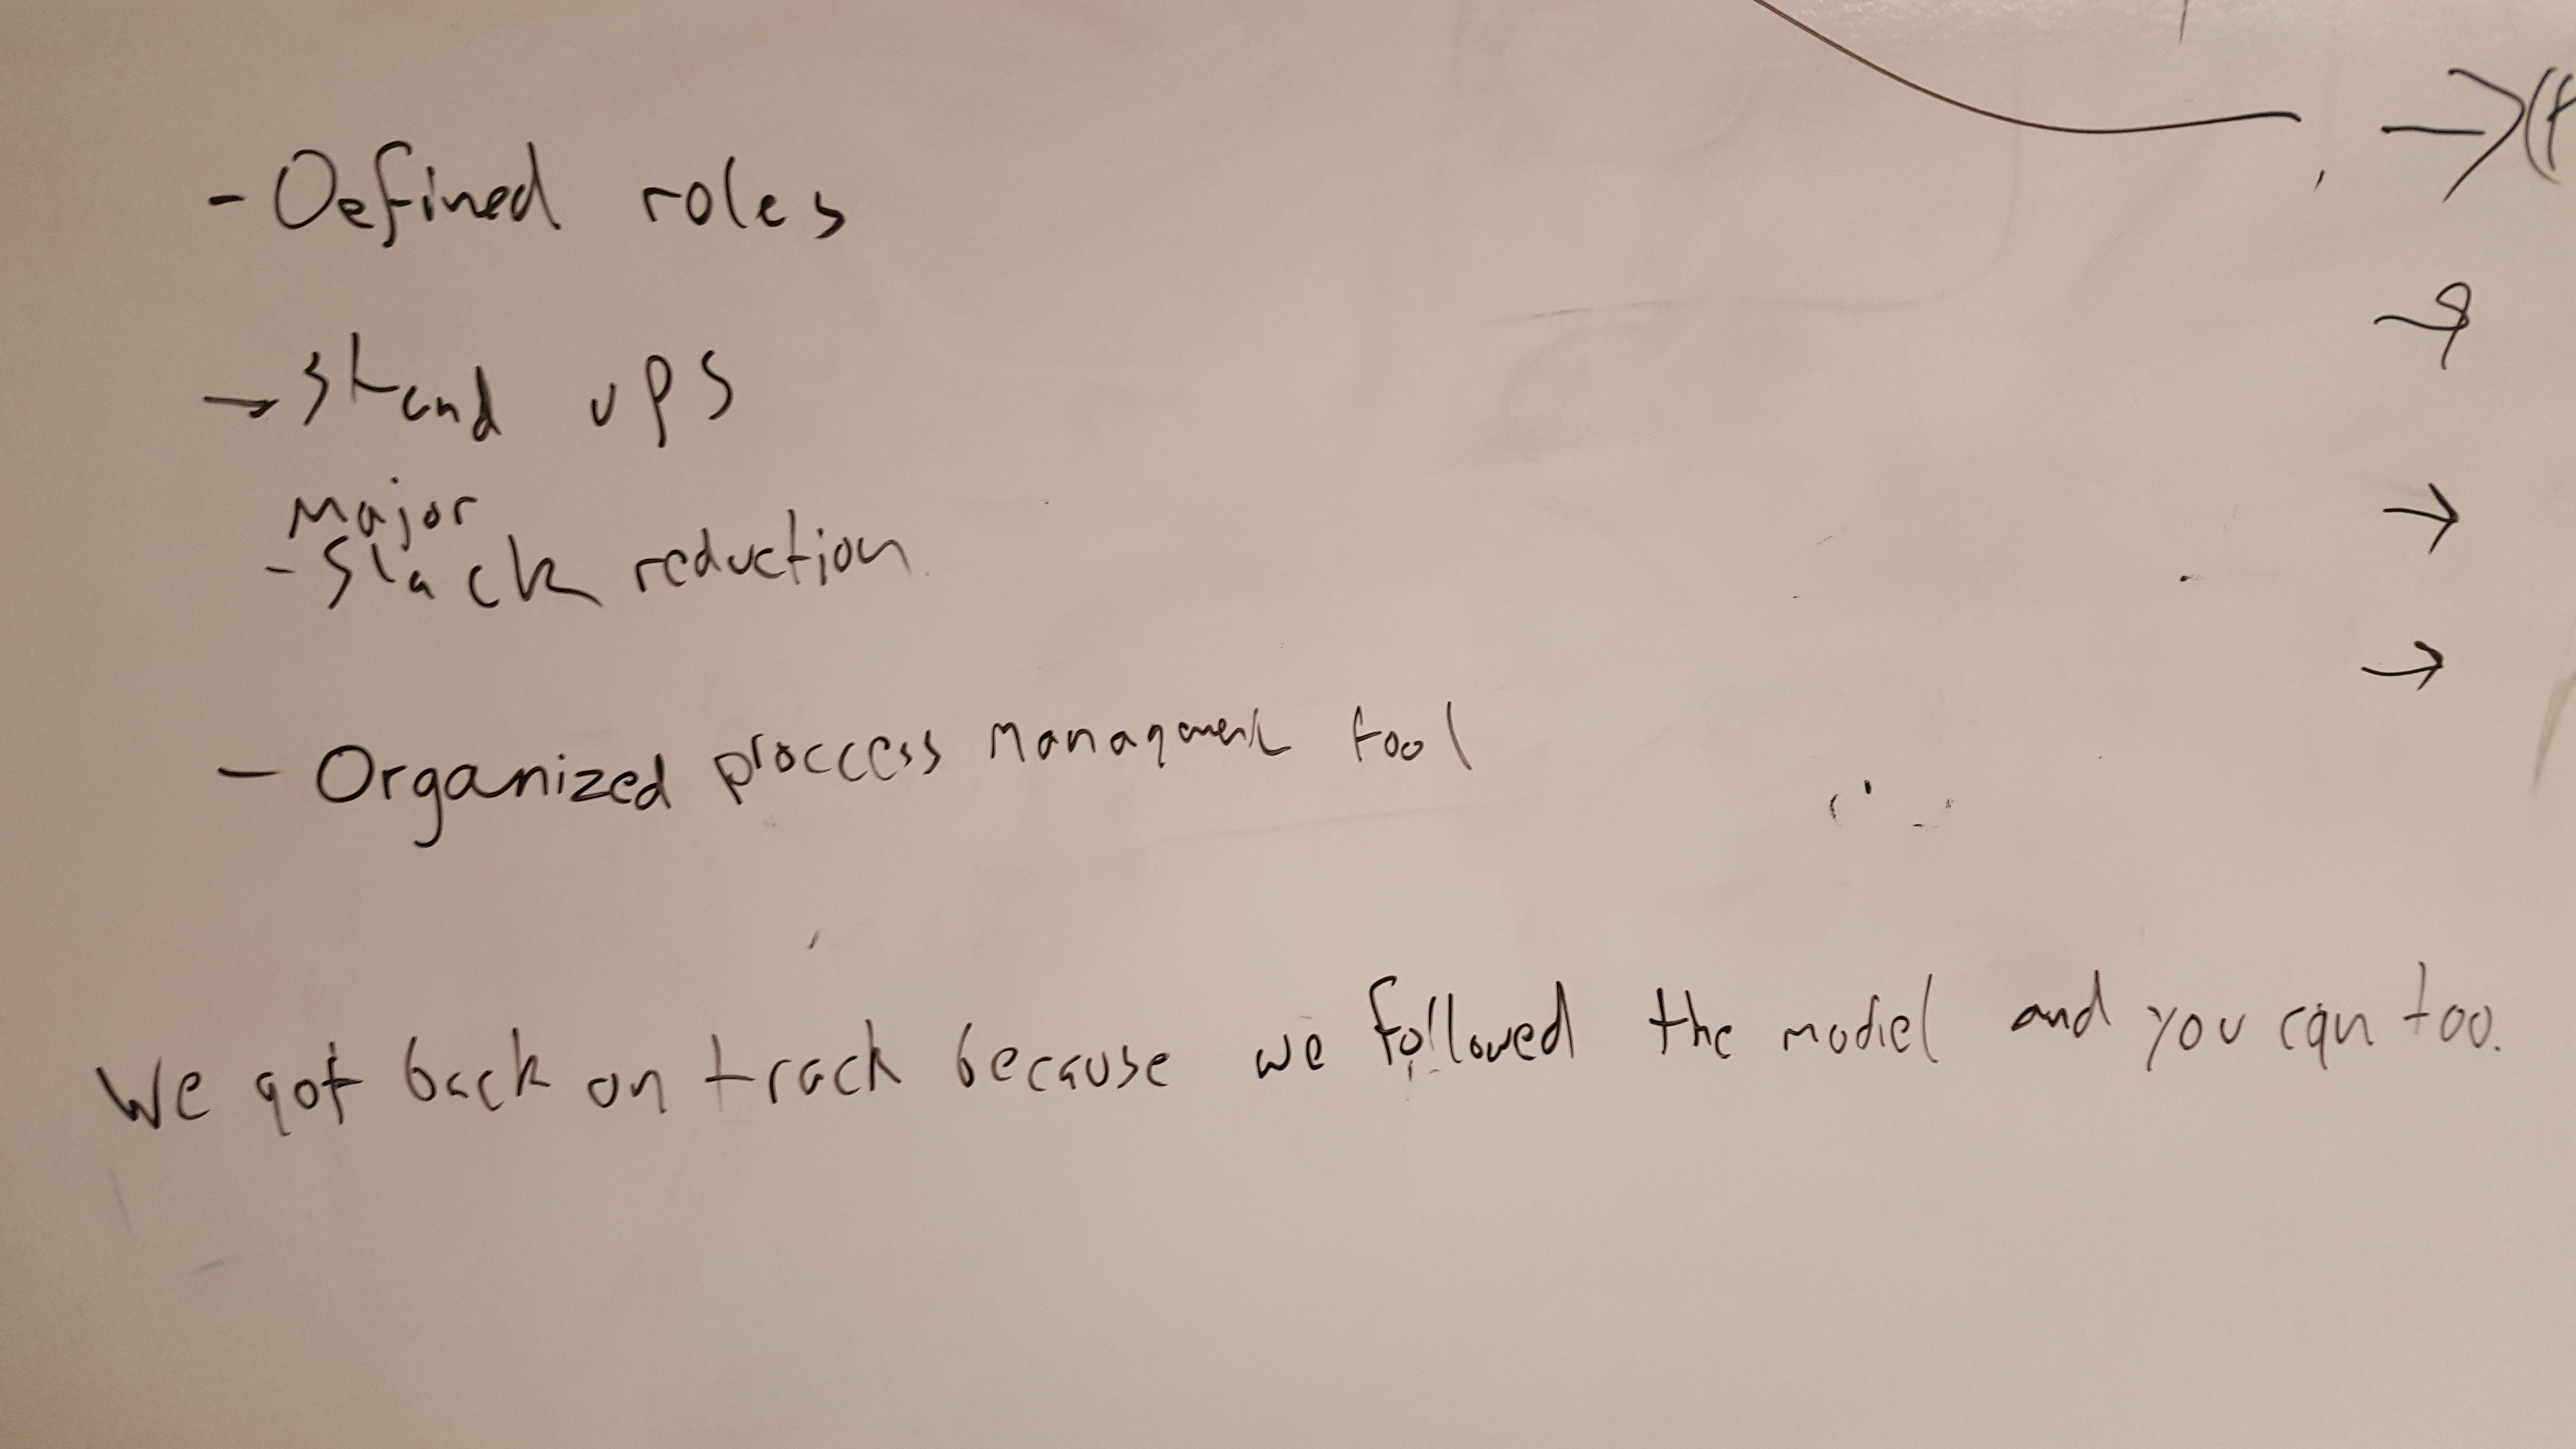 - Defined roles
→ Stand ups
Major
- Slack reduction
- Organized proccess managment tool
We got back on track because we followed the model and you can too.